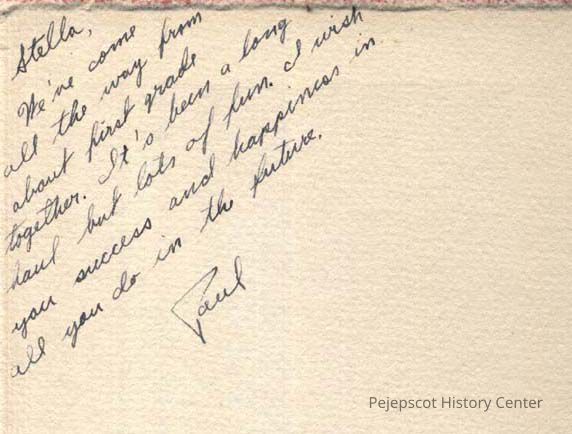 Stella,
We've come
all the way from
about first grade
together. It's been a long
haul but lots of fun. I wish
you success and happiness in
all you do in the future.
Paul
Pejepscot History Center